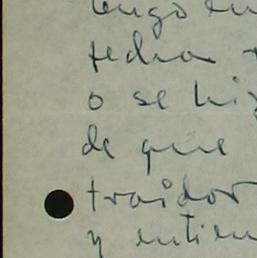 tengo en
fecha
o se hi
de que
traidor
y entien